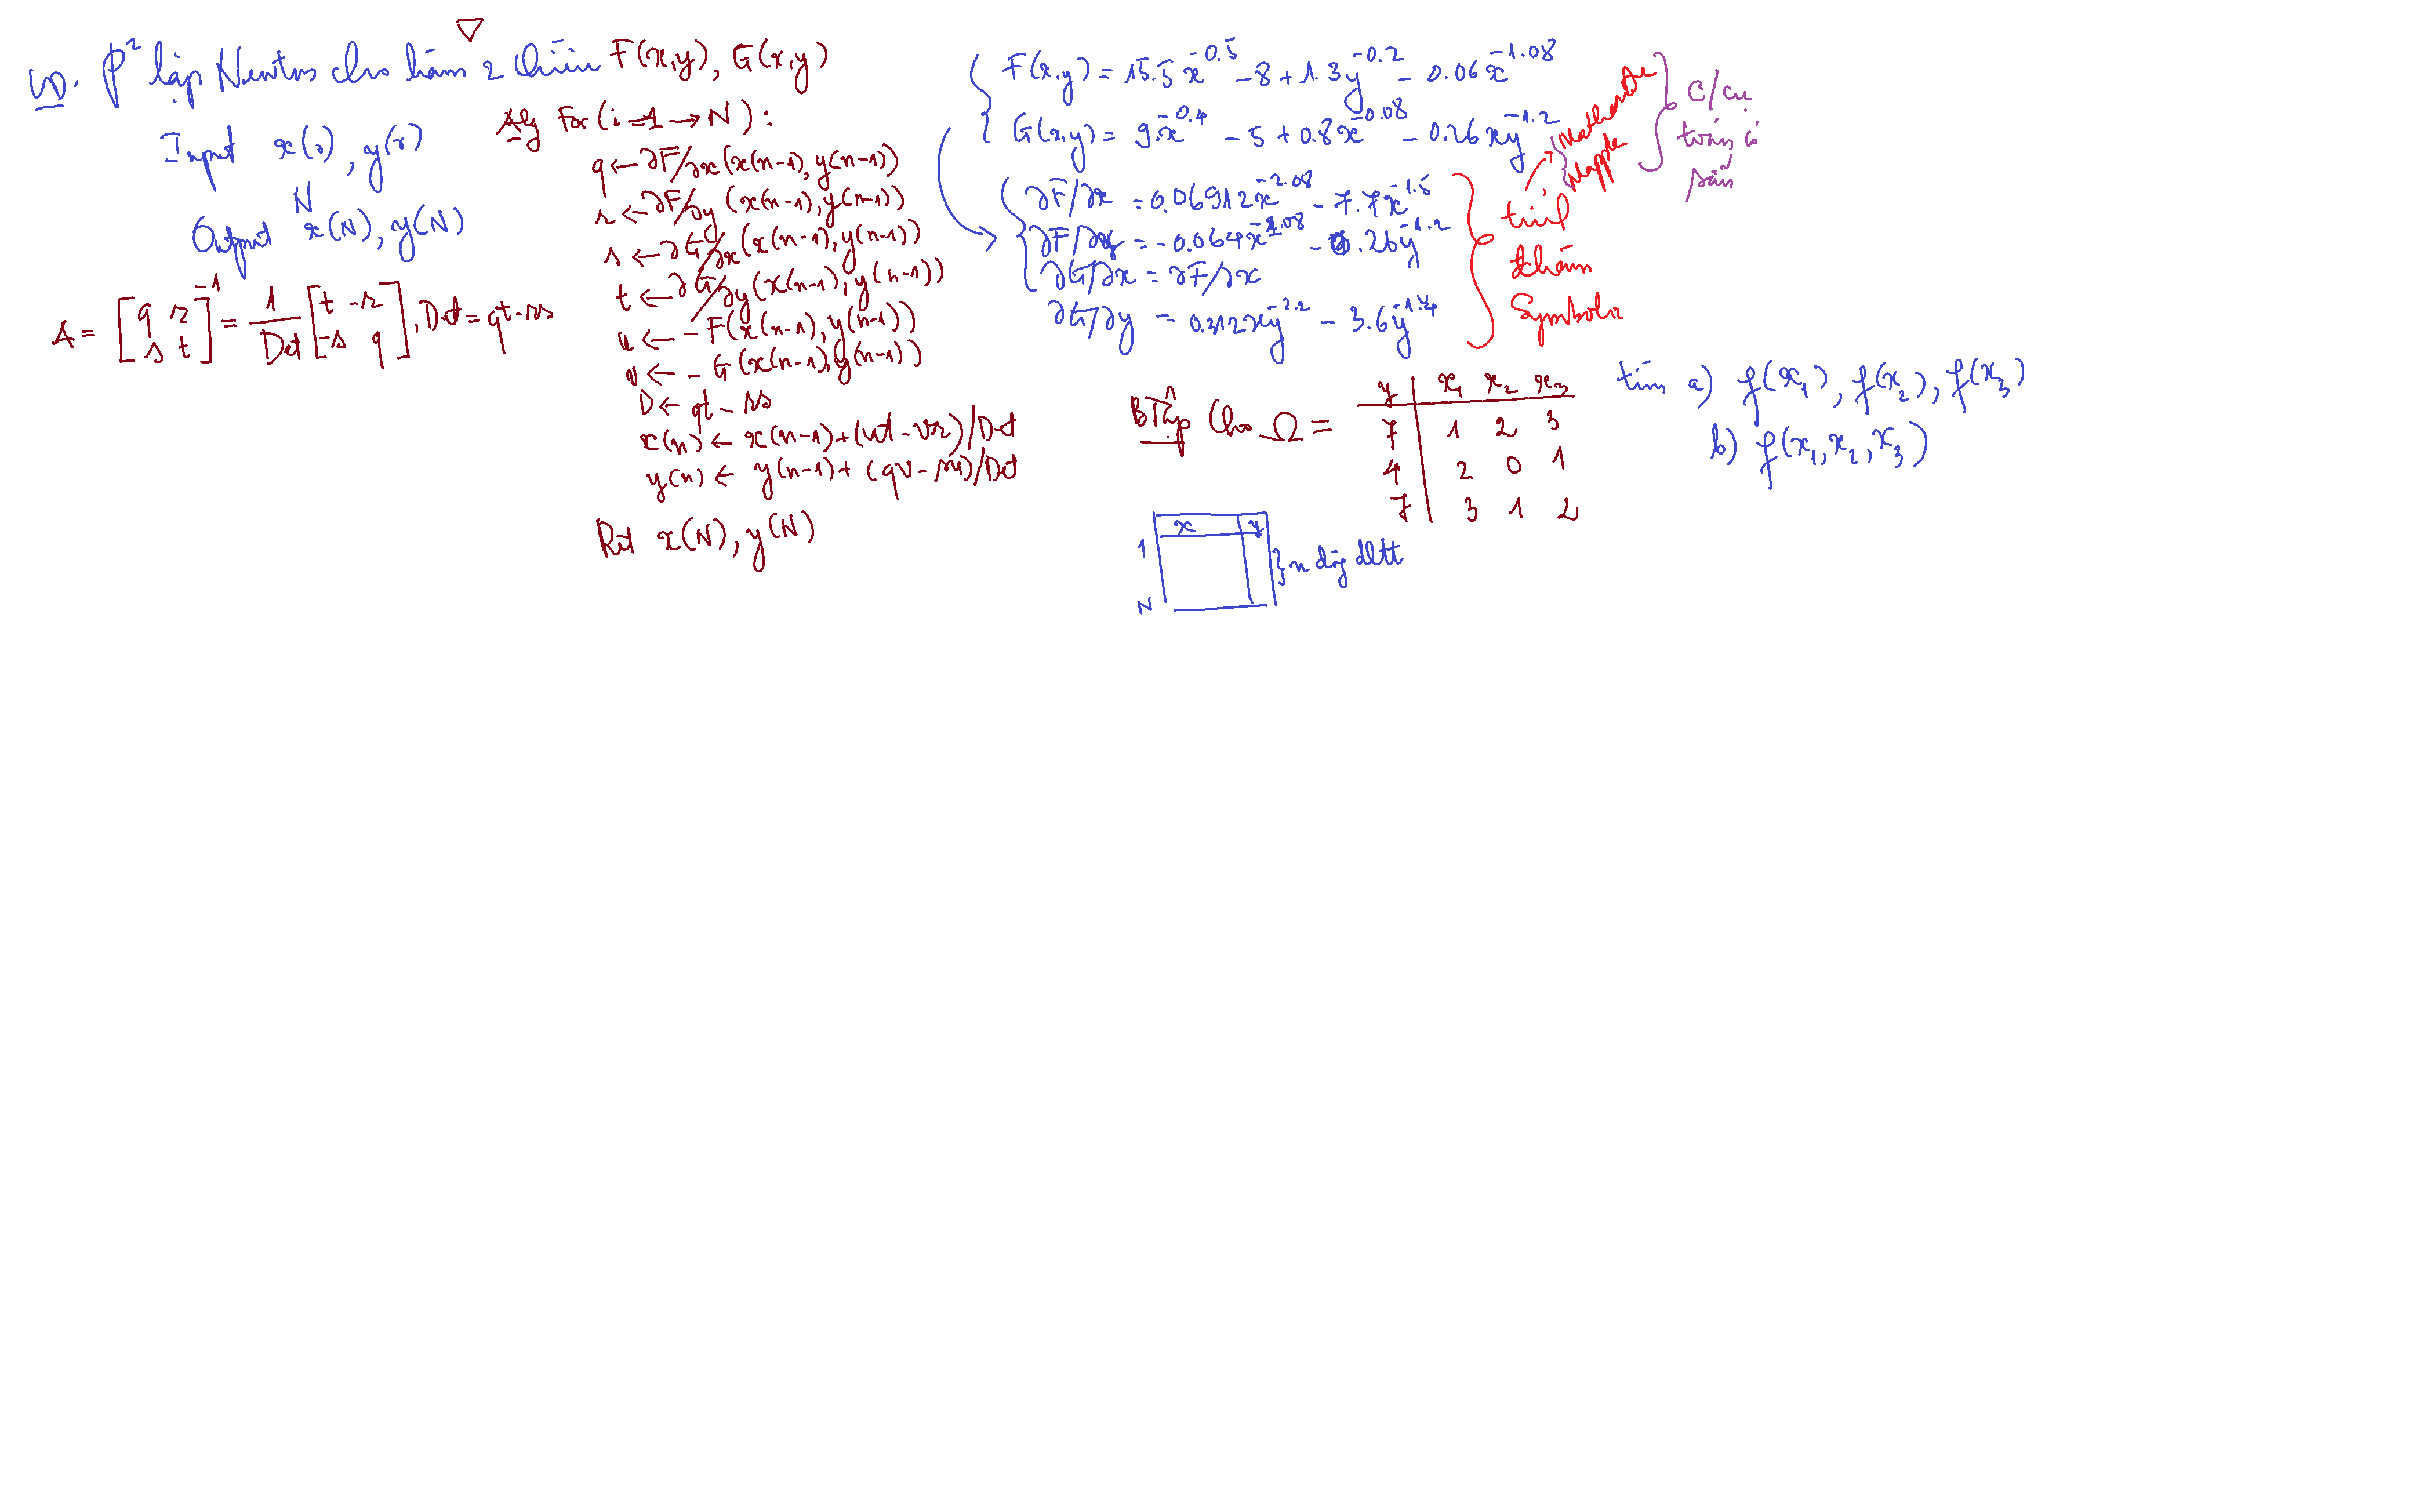 VD. P² lặp Newton cho hàm 2 chiều F(x,y), G(x,y)
Input x(0), y(0)
N
Output x(N), y(N)
A = [q r; s t]⁻¹ = 1/Det [t -r; -s q], Det = qt-rs
Alg For (i=1→N):
q ← ∂F/∂x (x(n-1), y(n-1))
r ← ∂F/∂y (x(n-1), y(n-1))
s ← ∂G/∂x (x(n-1), y(n-1))
t ← ∂G/∂y (x(n-1), y(n-1))
u ← - F(x(n-1), y(n-1))
v ← - G(x(n-1), y(n-1))
D ← qt - rs
x(n) ← x(n-1)+(ut-vr)/Det
y(n) ← y(n-1)+(qv-su)/Det
Ret x(N), y(N)
F(x,y) = 15.5x^-0.5 -8+1.3y^-0.2 - 0.06x^-1.08
G(x,y) = 9.x^-0.4 - 5 + 0.8x^-0.08 - 0.26xy^-1.2
∂F/∂x = 0.06912x^-2.08 - 7.7x^-1.5
∂F/∂y = -0.064x^-1.08 - 0.26y^-1.2
∂G/∂x = ∂F/∂x
∂G/∂y = 0.312xy^-2.2 - 3.6y^-1.4
Mapple
C/cụ
toán có
sẵn
hàm
Symbolic
BTập Cho Ω =
y x₁ x₂ x₃
7 1 2 3
4 2 0 1
7 3 1 2
tìm a) f(x₁), f(x₂), f(x₃)
b) f(x₁,x₂,x₃)
x y
1
N
} n dòg